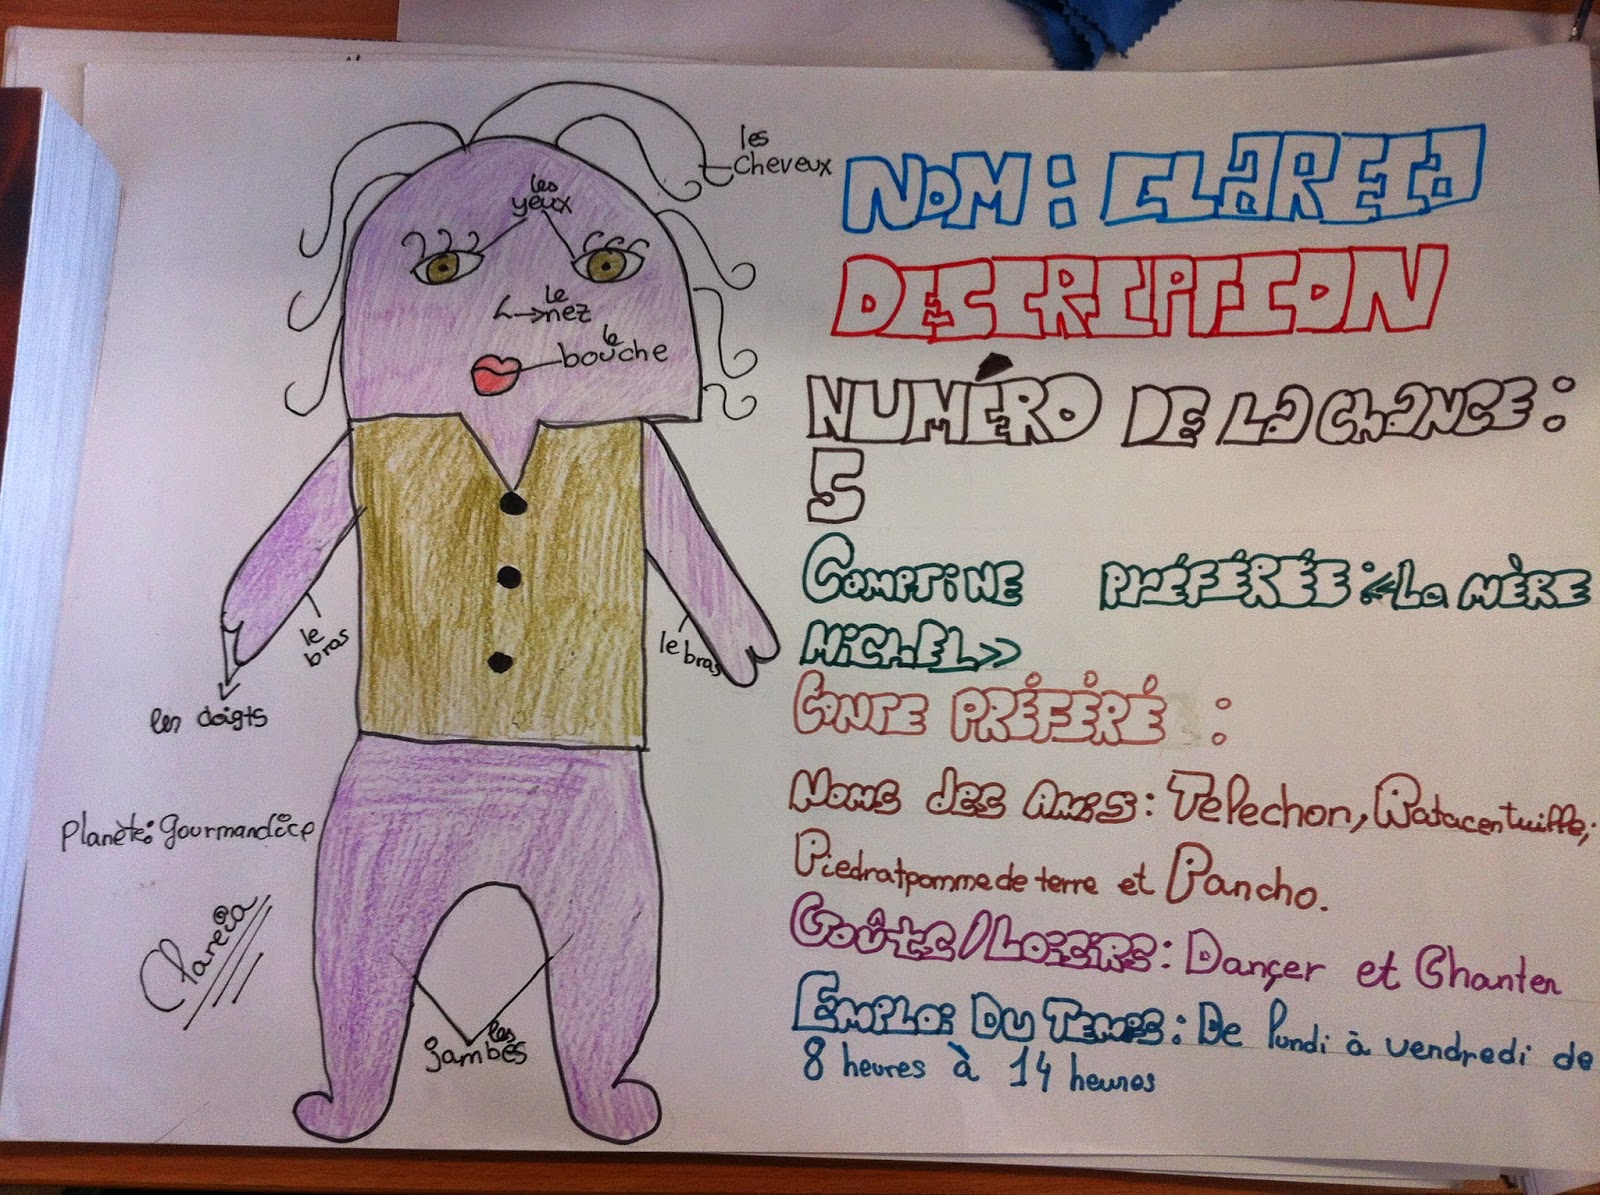 les
cheveux
les
yeux
le
nez
le
bouche
le
bras
le bras
les doigts
Planète: gourmandice
Clareta
les
jambes
NOM: CLARETA
DESCRIPTION
NUMÉRO DE LA CHANCE:
5
COMPTINE PRÉFÉRÉE: «La MÈRE
MICHEL»
CONTE PRÉFÉRÉ :
NOMS des AMIS: Telechon, Ratacentruiffe,
Piedratpomme de terre et Pancho.
GOÛTS/LOISIRS: Dançer et Chanter
EMPLOI DU TEMPS: De lundi à vendredi de
8 heures à 14 heures